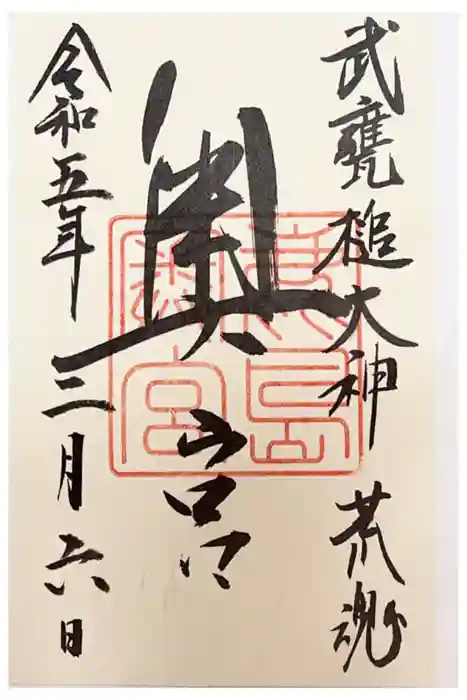 武甕槌大神 荒魂
奥宮
鹿島奥宮
令和五年三月六日